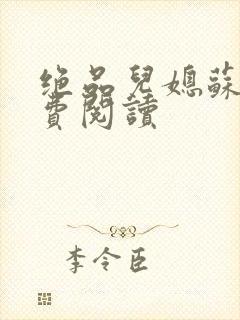 绝品兒媳蘇
費閱讀
李令臣